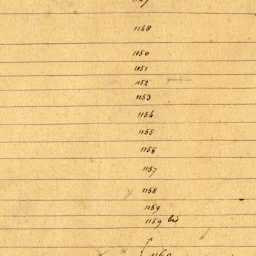 1148
1150
1151
1152
1153
1154
1155
1156
1157
1158
1159
1159 bis
1160